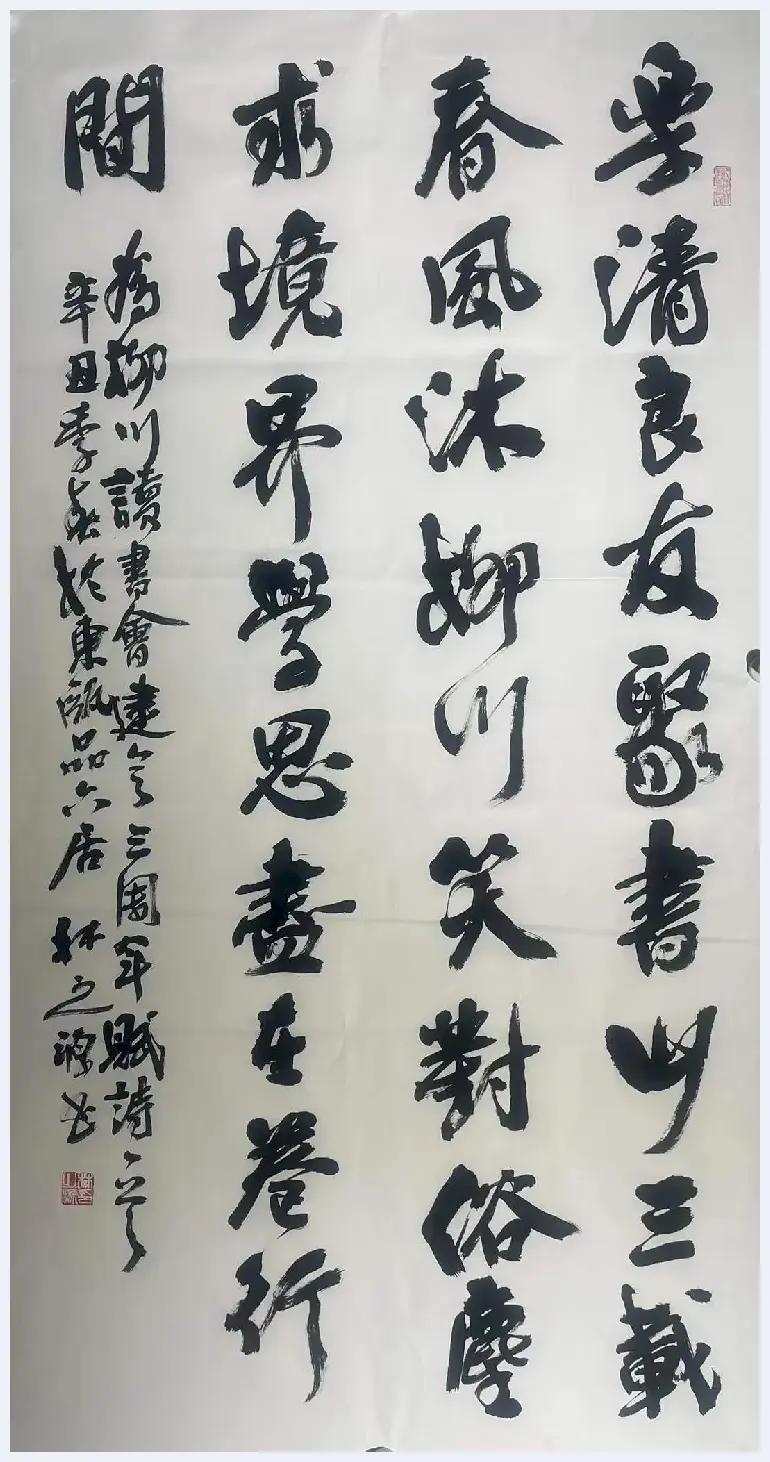 清良友聚書山三載
春風沐柳川笑對俗塵
求境界學思盡在卷行
間
為柳川讀書會建會三周年賦詩一首
辛丑季春於東甌品六居 林之源書